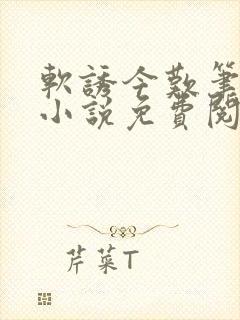 軟誘今歎筆
小說免費閱
芹菜T